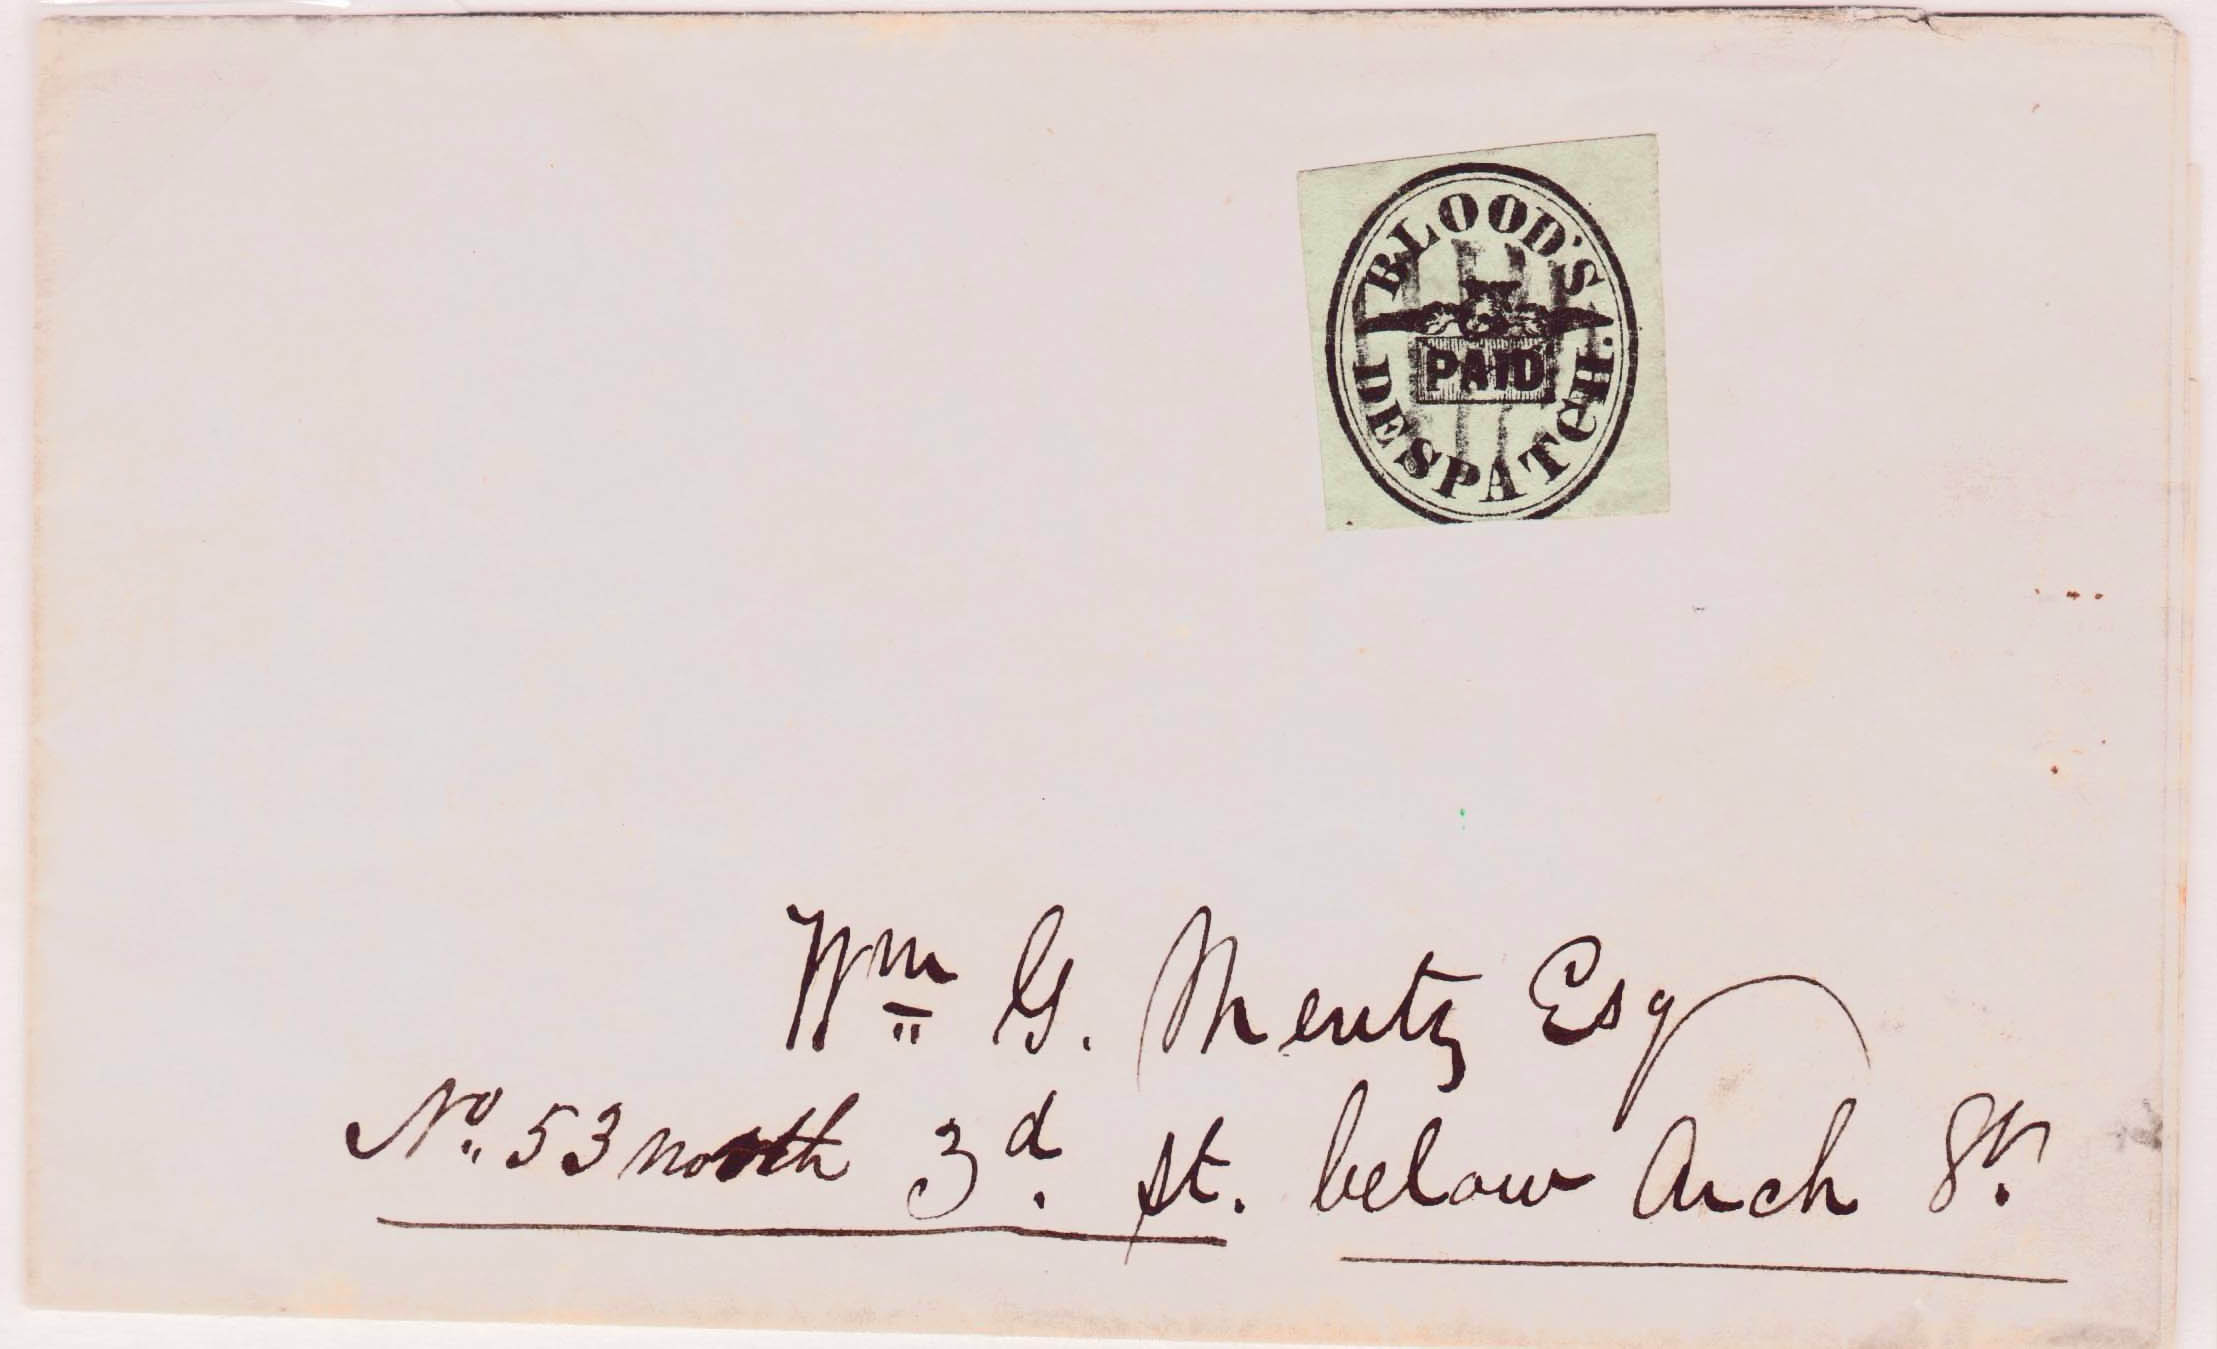 BLOOD'S
PAID
DESPATCH.
Wm G. Mentz Esq
No. 53 north 3d. st. below Arch St.